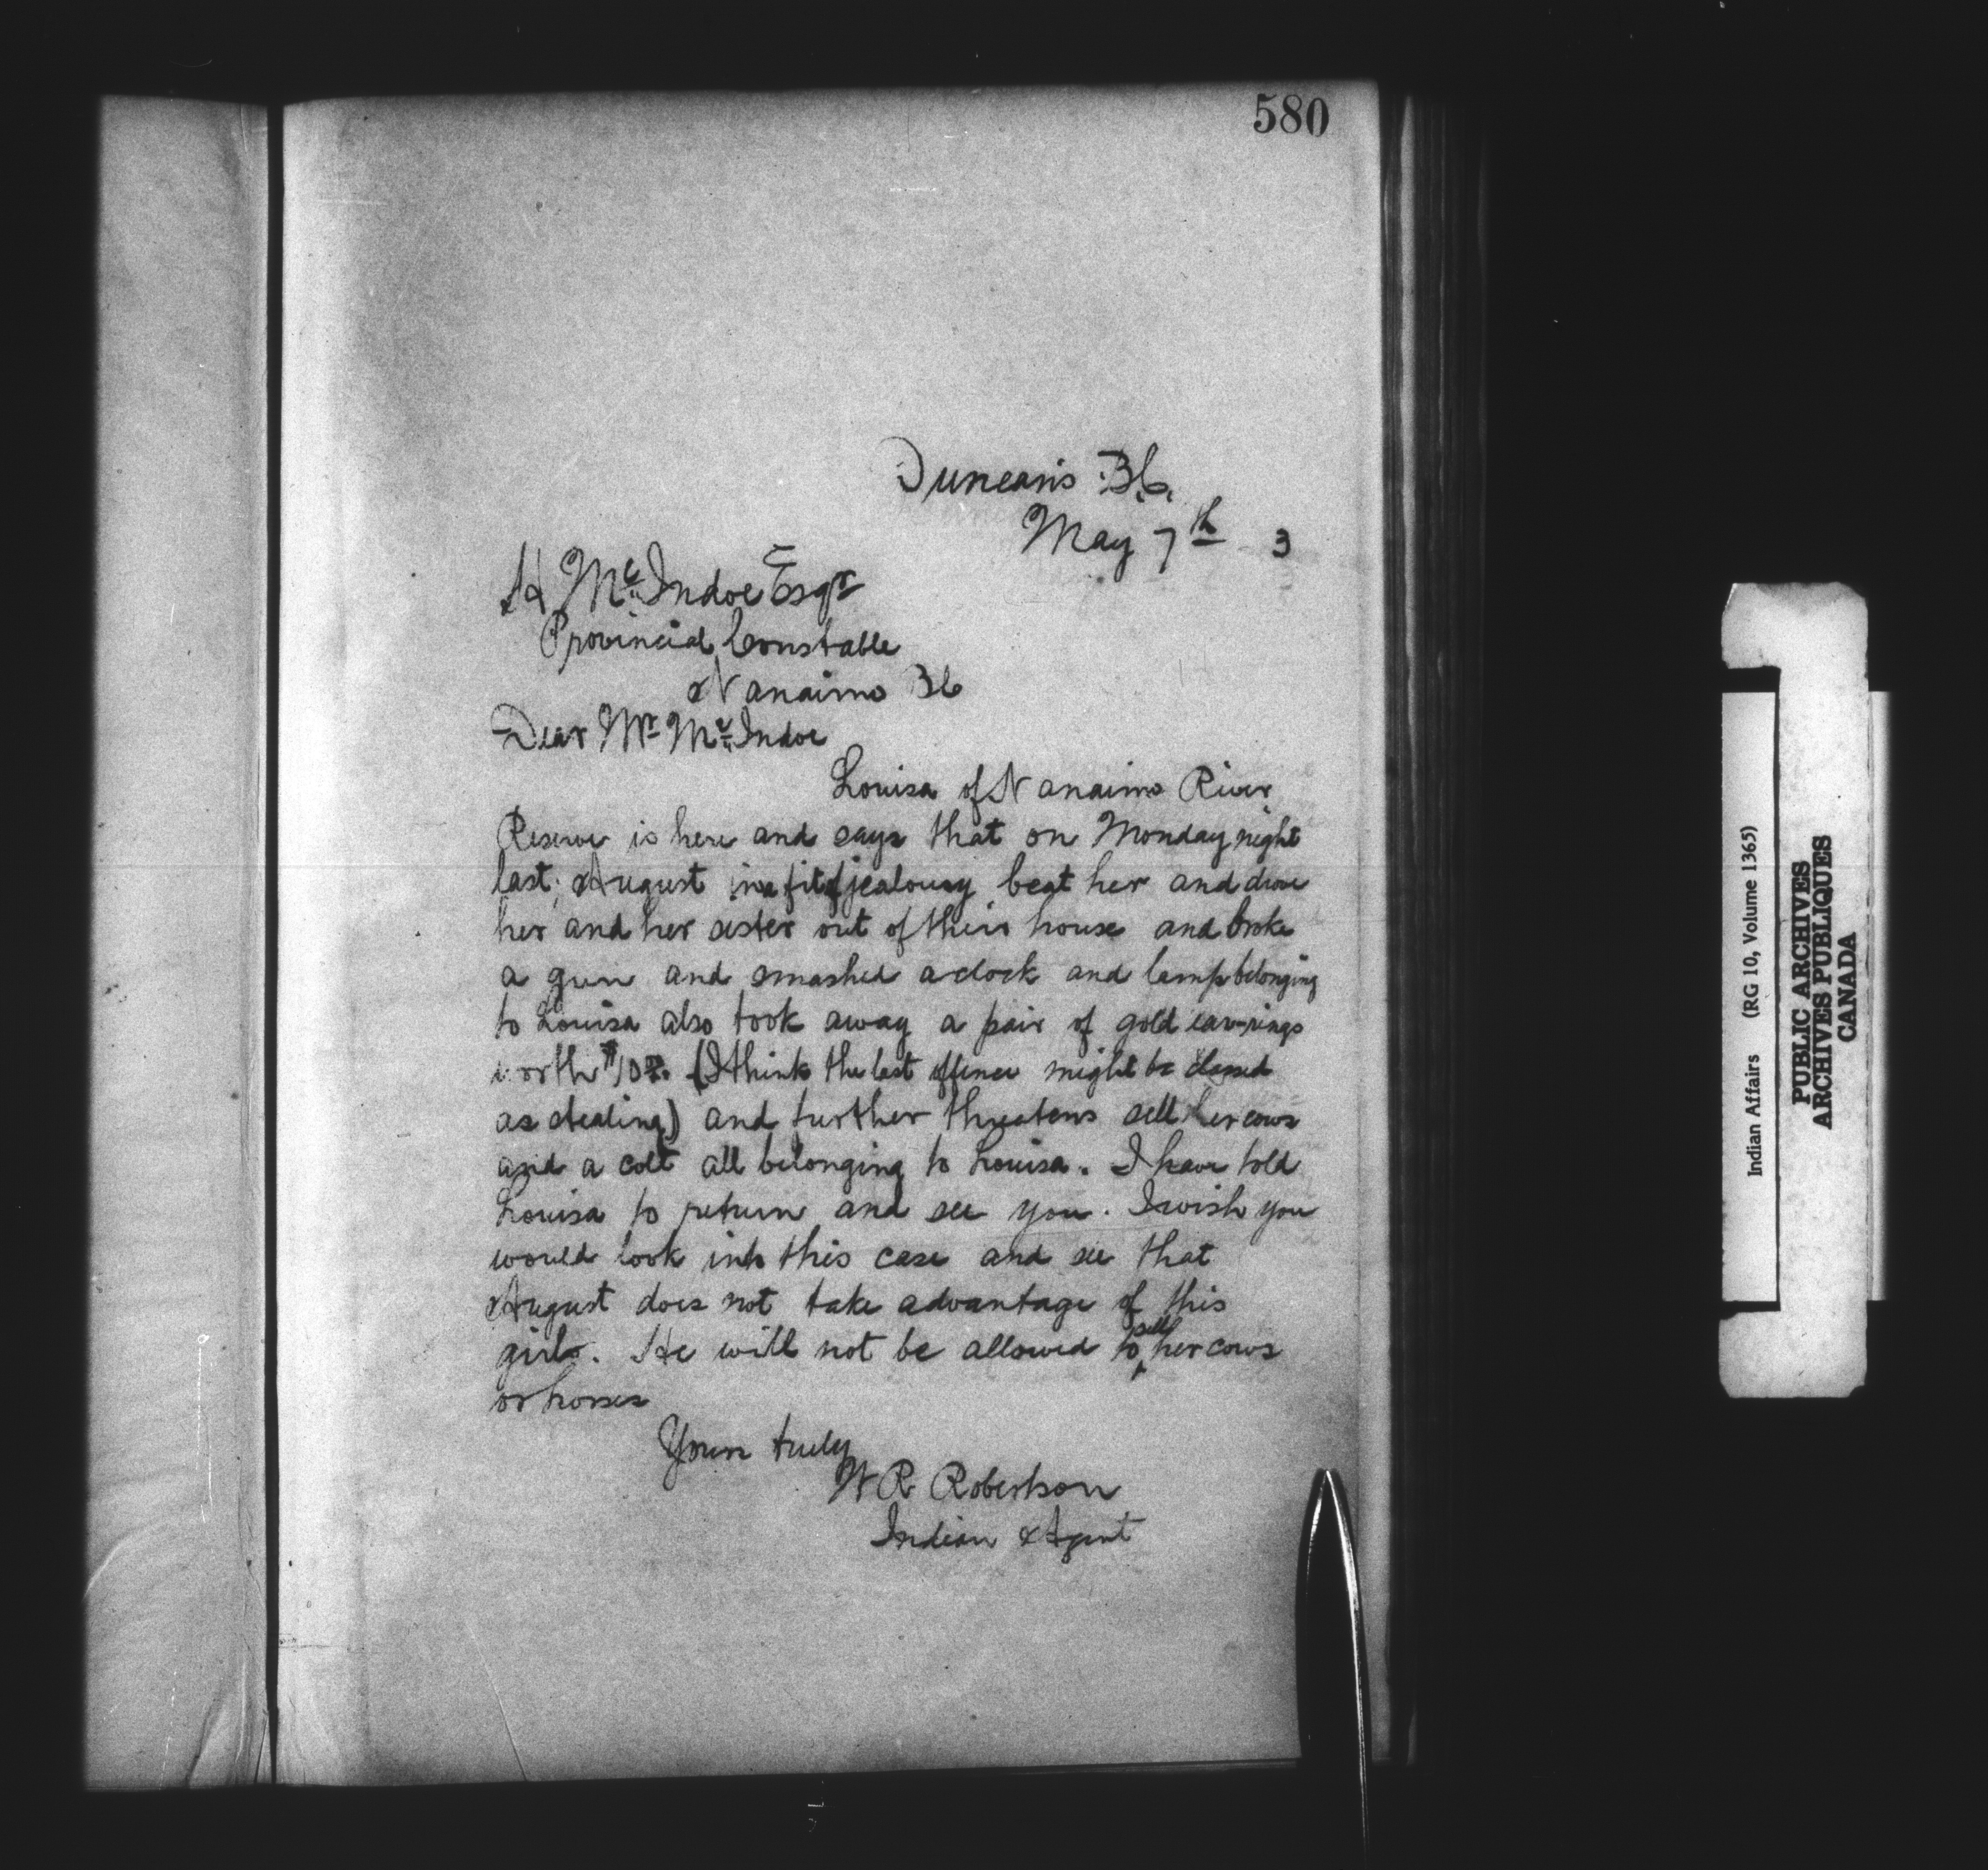 580
Duncan's B.C.
May 7th 3
H McIndoe Esqr
Provincial Constable
Nanaimo BC
Dear Mr McIndoe
Louisa of Nanaimo River
Reserve is here and says that on Monday night
last, August in a fit of jealousy beat her and drove
her and her sister out of their house and broke
a gun and smashed a clock and lamp belonging
to Louisa also took away a pair of gold ear-rings
worth $10 (I think the last offence might be classed
as stealing) and further threatens sell her cows
and a colt all belonging to Louisa. I have told
Louisa to return and see you. I wish you
would look into this case and see that
August does not take advantage of this
girl. He will not be allowed to sell her cows
or horses
Yours truly
W R Robertson
Indian Agent
Indian Affairs (RG 10, Volume 1365)
PUBLIC ARCHIVES
ARCHIVES PUBLIQUES
CANADA